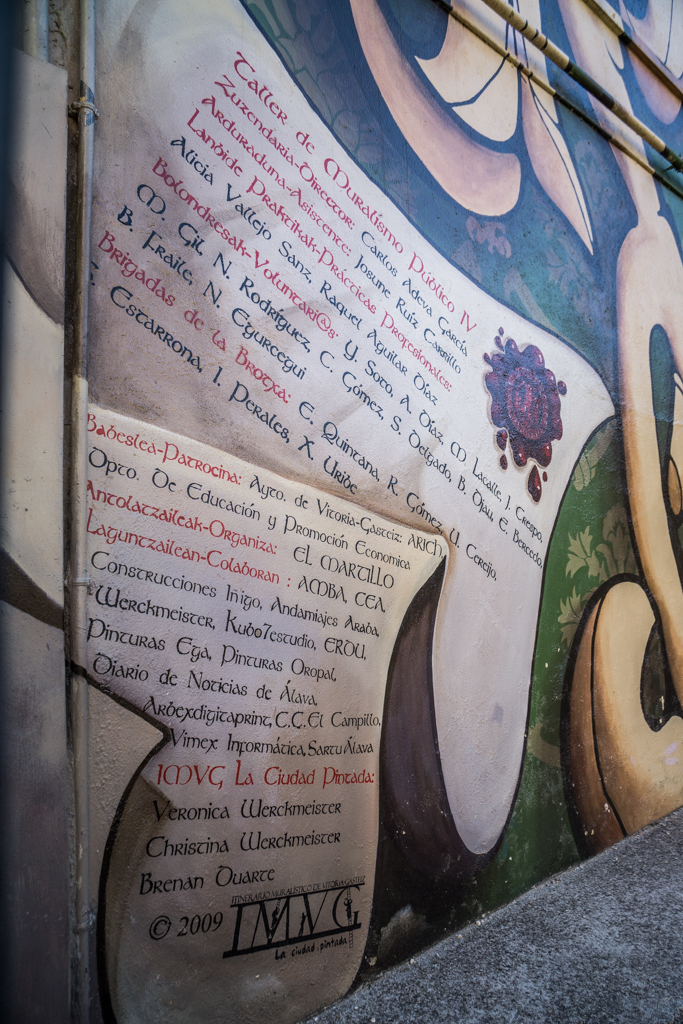 Taller de Muralismo Público IV
Zuzendaria-Director: Carlos Adeva García
Arduraduna-Asistente: Josune Ruiz Carrillo
Landide Praktikak-Prácticas Profesionales:
Alicia Vallejo Sanz, Raquel Aguilar Díaz
Bolondresak-Voluntari@s: Y. Soto, A. Díaz, M. Lacalle, J. Crespo,
M. Gil, N. Rodríguez, C. Gómez, S. Delgado, B. Djau, E. Berecedo,
B. Fraile, N. Egurcegui
Brigadas de la Brotxa: E. Quintana, R. Gómez, U. Cerejo,
Estarrona, I. Perales, X. Uribe
Babeslea-Patrocina: Ayto. de Vitoria-Gasteiz: ARICH
Dpto. De Educación y Promoción Economica
Antolatzaileak-Organiza: EL MARTILLO
Laguntzailean-Colaboran : AMBA, CEA,
Construcciones Iñigo, Andamiajes Araba,
Werckmeister, Kubo7estudio, ERDU,
Pinturas Ega, Pinturas Oropal,
Diario de Noticias de Álava,
Arbexdigitaprint, C.C. El Campillo,
Vimex Informática, Sartu Álava
IMVG La Ciudad Pintada:
Veronica Werckmeister
Christina Werckmeister
Brenan Duarte
© 2009
ITINERARIO MURALISTICO DE VITORIA GASTEIZ
IMVG
La ciudad pintada